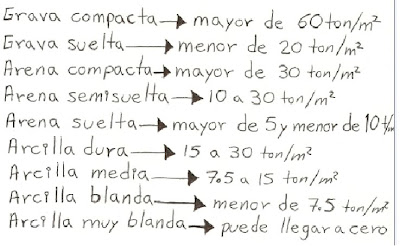 Grava compacta → mayor de 60 ton/m²
Grava suelta → menor de 20 ton/m²
Arena compacta → mayor de 30 ton/m²
Arena semisuelta → 10 a 30 ton/m²
Arena suelta → mayor de 5 y menor de 10 t/m
Arcilla dura → 15 a 30 ton/m²
Arcilla media → 7.5 a 15 ton/m²
Arcilla blanda → menor de 7.5 ton/m²
Arcilla muy blanda → puede llegar a cero